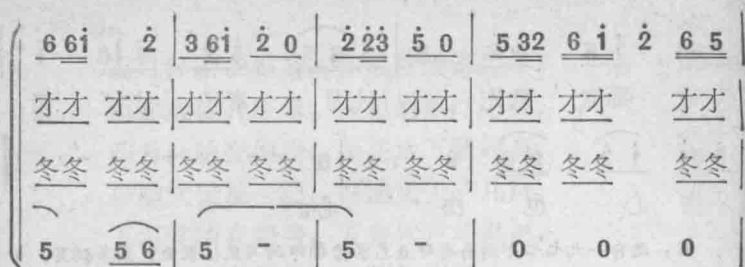 6 6i̇ 2̇ | 3 6i̇ 2̇ 0 | 2̇ 2̇3̇ 5̇ 0 | 5 32 6 i̇ 2̇ 6 5
才才 才才 | 才才 才才 | 才才 才才 | 才才 才才 才才
冬冬 冬冬 | 冬冬 冬冬 | 冬冬 冬冬 | 冬冬 冬冬 冬冬
5 5 6 | 5 - | 5 - | 0 0 0